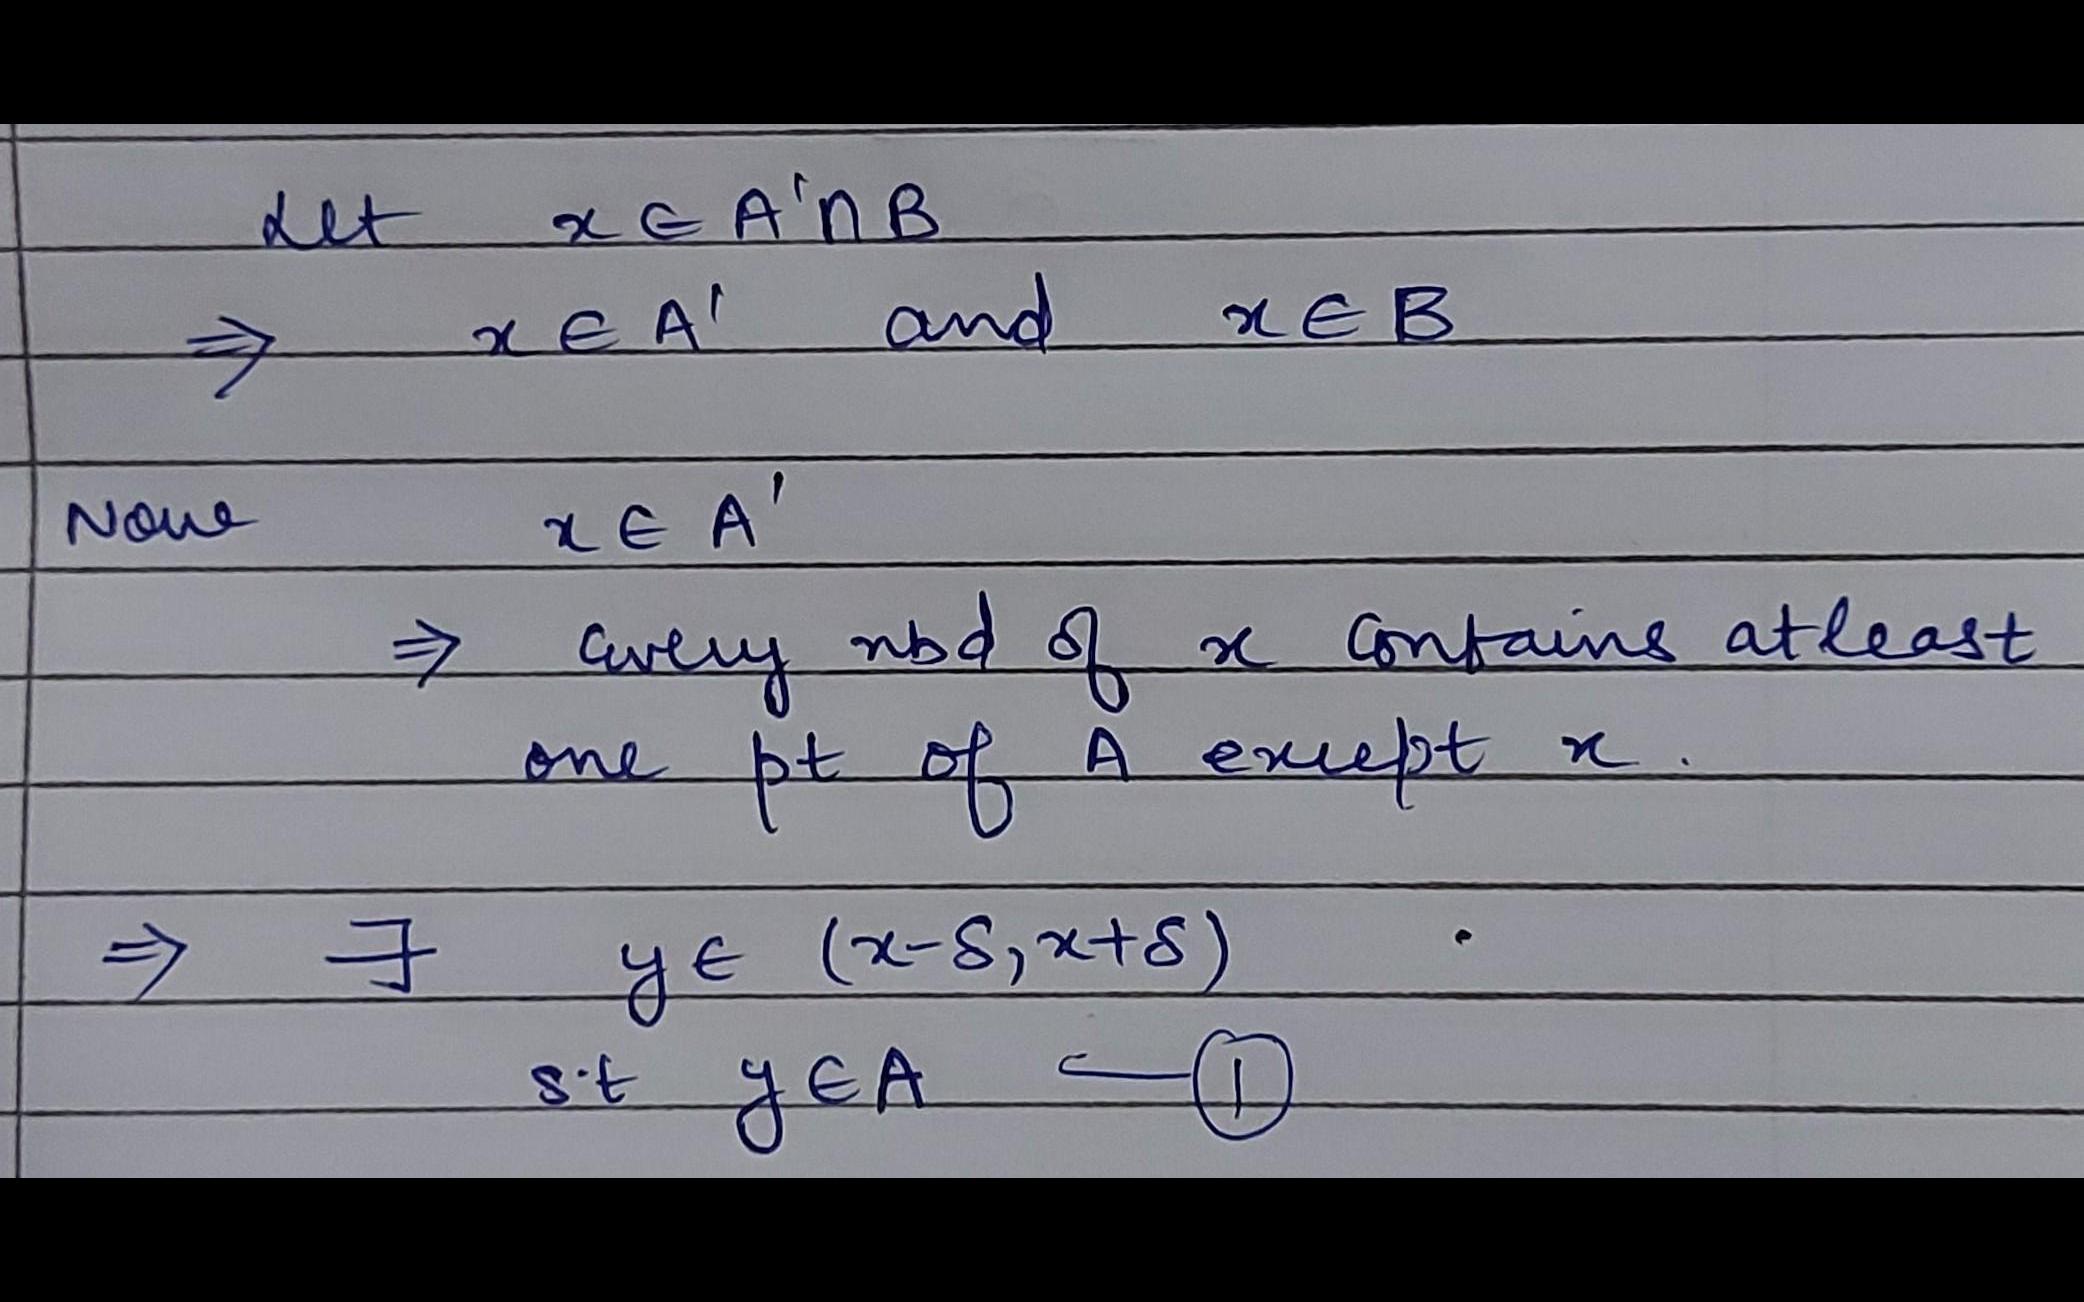 Let x ∈ A' ∩ B
⇒ x ∈ A' and x ∈ B
Now x ∈ A'
⇒ every nbd of x contains atleast
one pt of A except x.
⇒ ∃ y ∈ (x-δ, x+δ)
s.t y ∈ A — ①